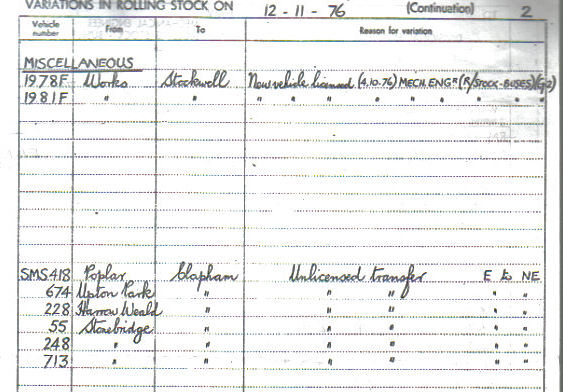 VARIATIONS IN ROLLING STOCK ON 12 - 11 - 76 (Continuation) 2
Vehicle number From To Reason for variation
MISCELLANEOUS
1978F Works Stockwell New vehicle licensed (4.10.76) MECH.ENGR (R/STOCK-BUSES)(G2)
1981F " " " " " " " " "
SMS418 Poplar Clapham Unlicensed transfer E to NE
674 Upton Park " " " " "
228 Harrow Weald " " " " "
55 Stonebridge " " " " "
248 " " " " " "
713 " " " " " "